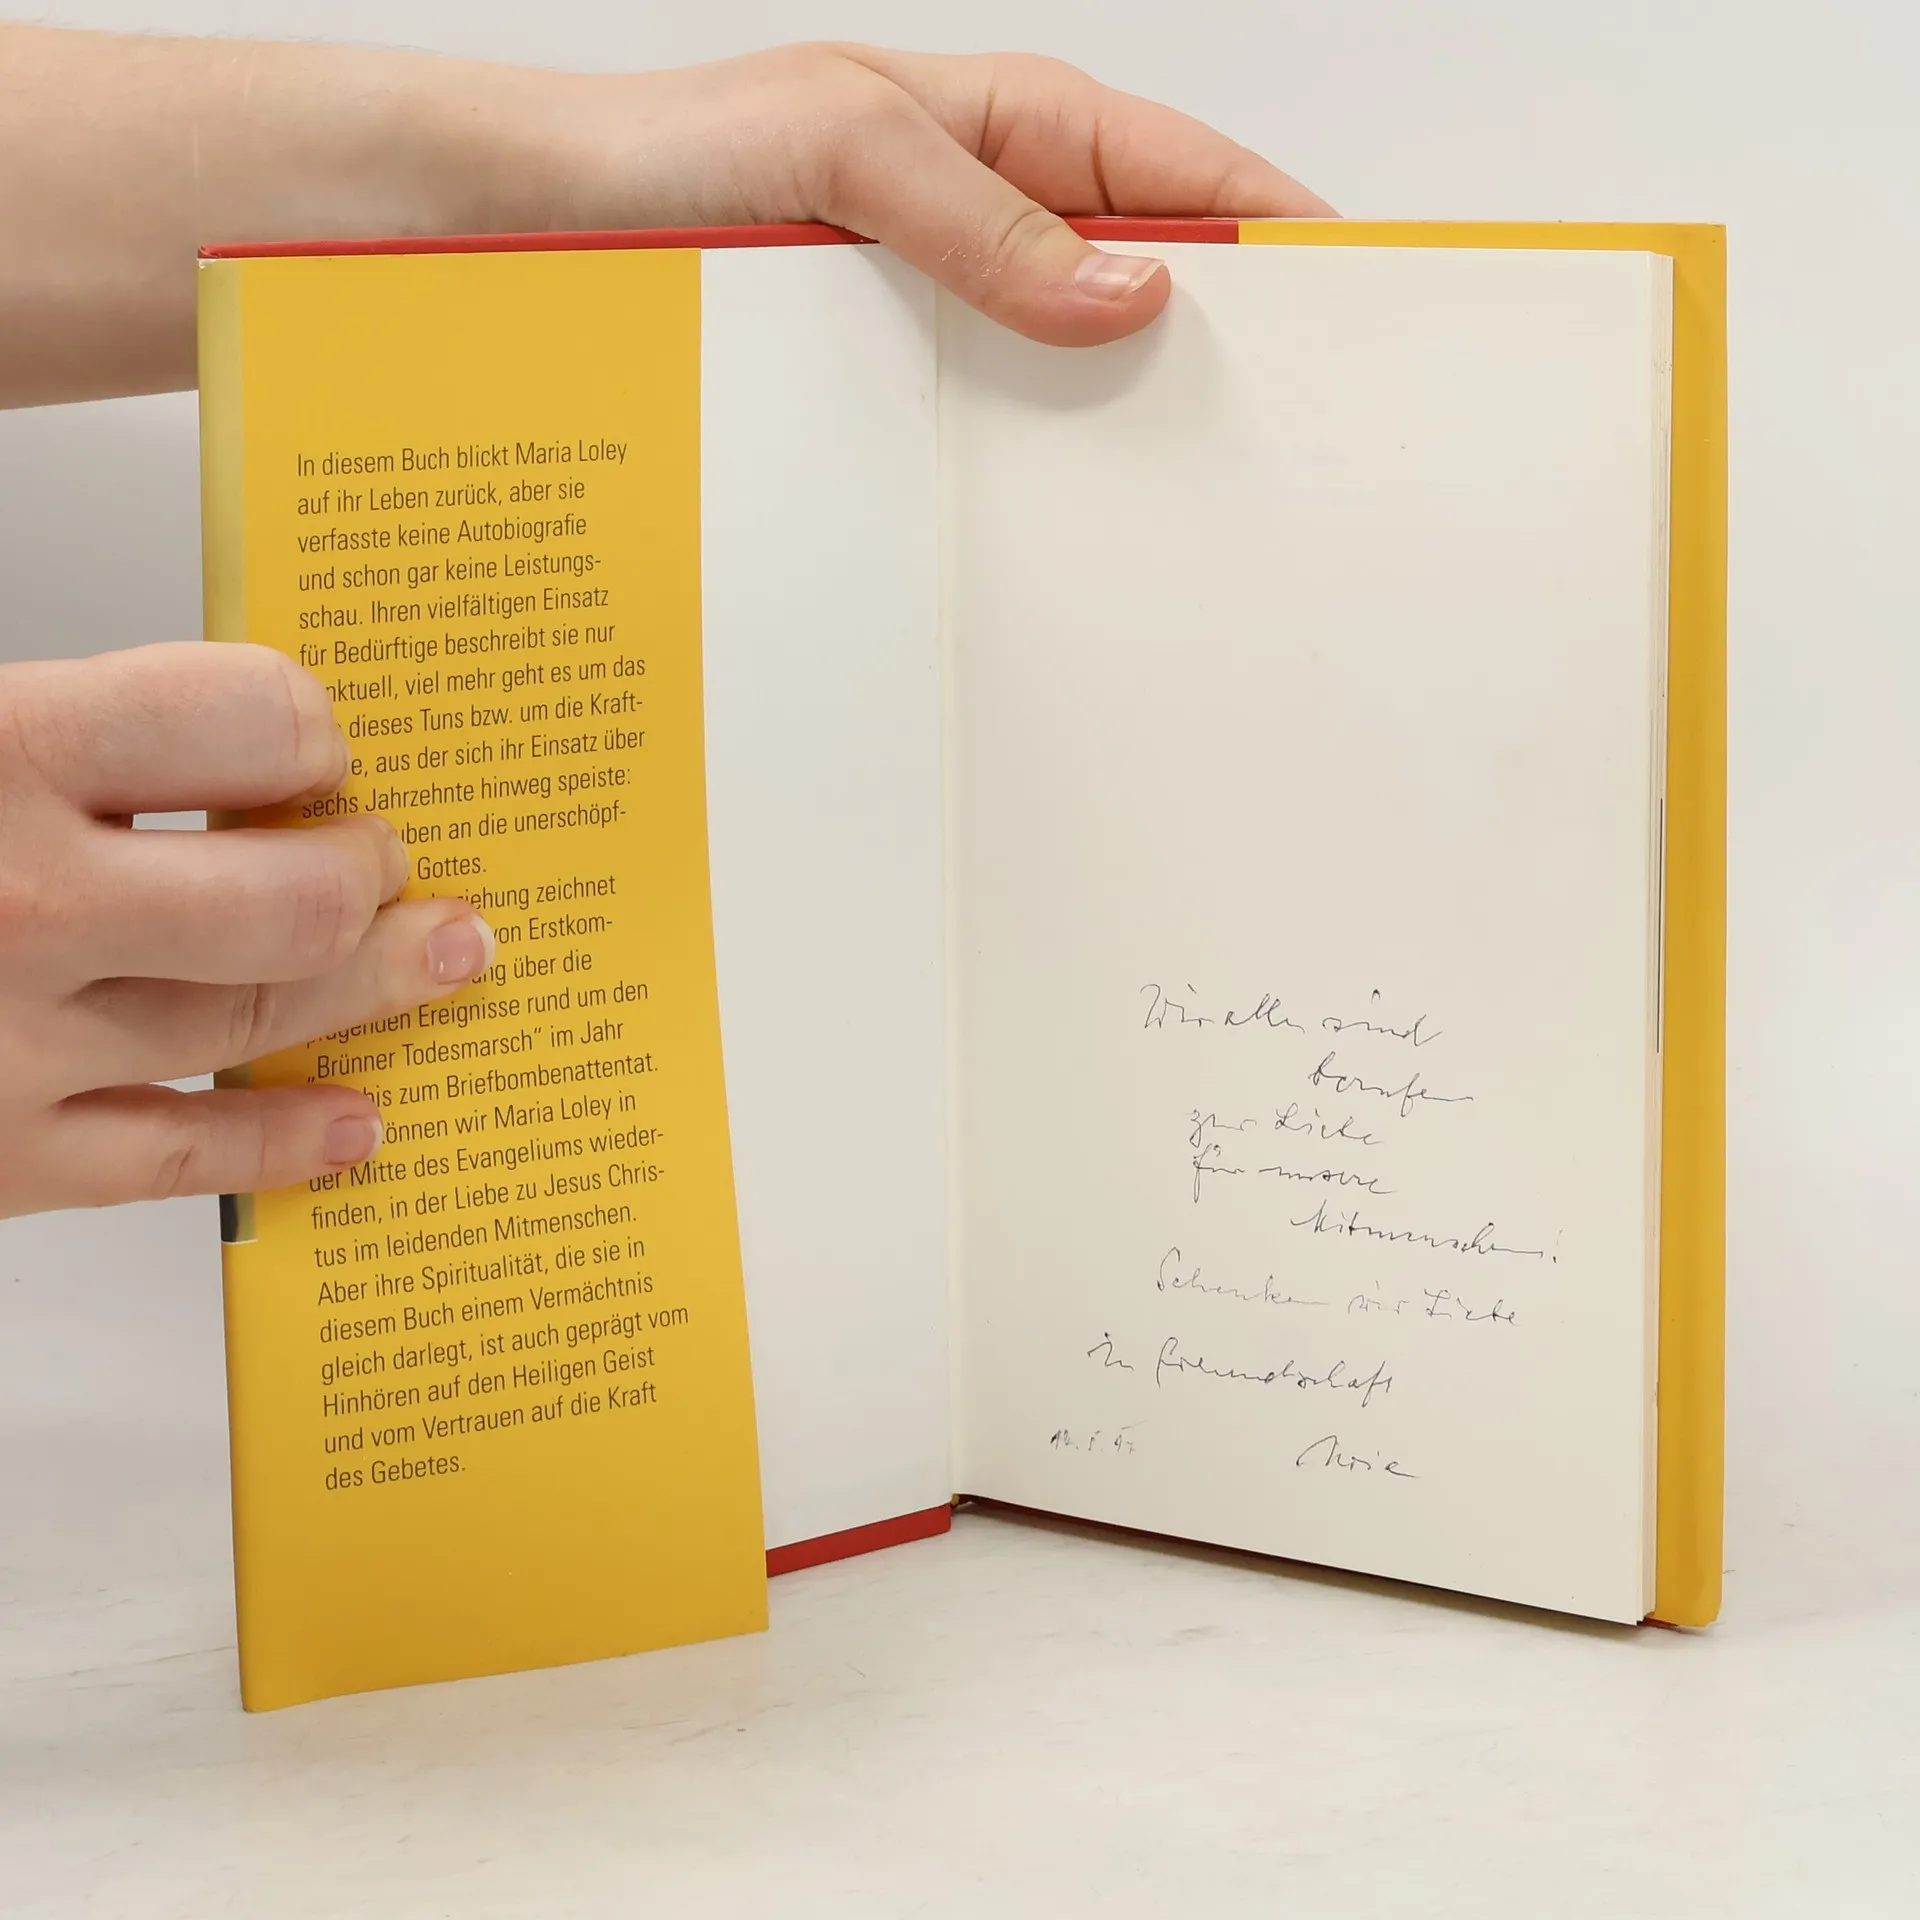 In diesem Buch blickt Maria Loley
auf ihr Leben zurück, aber sie
verfasste keine Autobiografie
und schon gar keine Leistungs-
schau. Ihren vielfältigen Einsatz
für Bedürftige beschreibt sie nur
nktuell, viel mehr geht es um das
dieses Tuns bzw. um die Kraft-
e, aus der sich ihr Einsatz über
sechs Jahrzehnte hinweg speiste:
uben an die unerschöpf-
Gottes.
iehung zeichnet
von Erstkom-
ng über die
prägenden Ereignisse rund um den
„Brünner Todesmarsch“ im Jahr
bis zum Briefbombenattentat.
können wir Maria Loley in
der Mitte des Evangeliums wieder-
finden, in der Liebe zu Jesus Chris-
tus im leidenden Mitmenschen.
Aber ihre Spiritualität, die sie in
diesem Buch einem Vermächtnis
gleich darlegt, ist auch geprägt vom
Hinhören auf den Heiligen Geist
und vom Vertrauen auf die Kraft
des Gebetes.
Wir alle sind
berufen
zur Liebe
für unsere
Mitmenschen!
Schenken wir Liebe
In Freundschaft